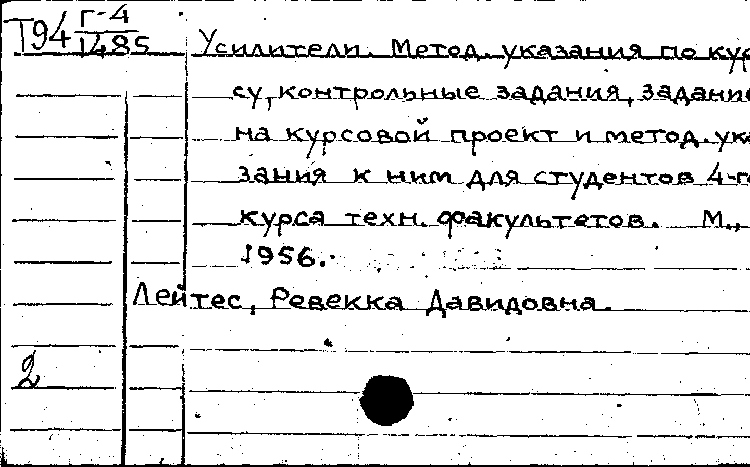 Т94 Г-4
1485
Усилители. Метод. указания по кур
су, контрольные задания, задание
на курсовой проект и метод. ука
зания к ним для студентов 4-го
курса техн. факультетов. М.,
1956.
Лейтес, Ревекка Давидовна.
2